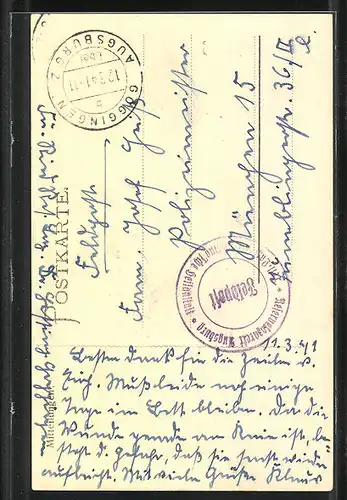 GÖGGINGEN
über
AUGSBURG 2
12.3.41-11
b
OSTKARTE.
Feldpost
Fam. Josef
Polizeimeister
München 15
36/II
Reservelazarett Augsburg
Feldpost
11.3.41
Besten Dank für die Zeilen v.
Euch. Muß leider noch einige
Tage im Bett bleiben. Da die
Wunde gerade am Knie ist, be-
steht d. Gefahr, daß sie sonst wieder
aufbricht. Mit viele Grüße Klaus